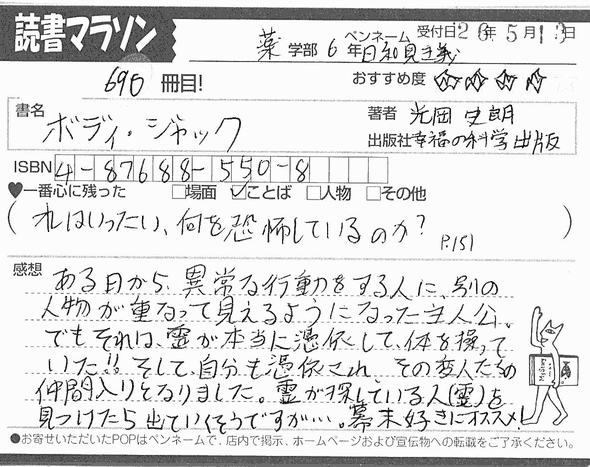 読書マラソン
薬 学部 6 年 ペンネーム 日和見主義 受付日 26年5月13日
690 冊目! おすすめ度
書名 ボディ・ジャック
著者 光岡史朗
出版社 幸福の科学出版
ISBN 4-87688-550-8
♥一番心に残った □場面 ☑ことば □人物 □その他
(れはいったい、何を恐怖しているのか? P.151)
感想 ある日から、異常な行動をする人に、別の
人物が重なって見えるようになった主人公。
でもそれは、霊が本当に憑依して、体を操って
いた!! そして、自分も憑依され、その変人たちの
仲間入りとなりました。霊が探している人(霊)を
見つけたら出ていくそうですが…。幕末好きにオススメ!
●お寄せいただいたPOPはペンネームで、店内で掲示、ホームページおよび宣伝物への転載をご了承ください。